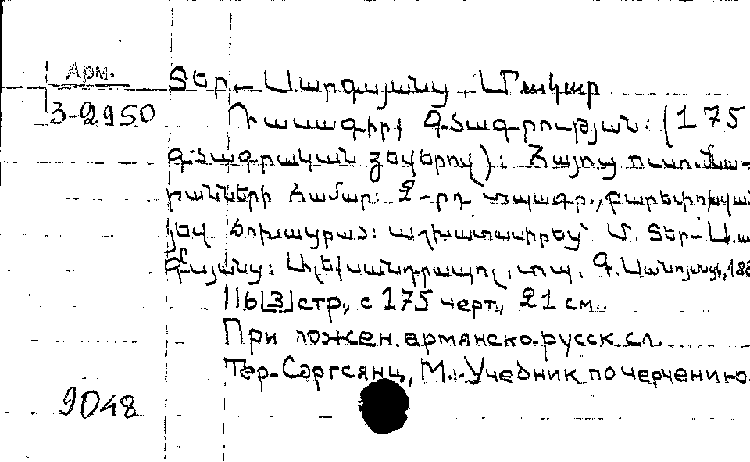 Арм.
Տեր-Սարգսյանց Մակար
3-2950
Դասագիրք Գծագրության: (175
գծագրական ձևերով): Հայոց ուսումնա-
րանների համար: 2-րդ տպագր.,
յեվ Աշխատասիրեց Մ. Տեր-Սար
գսյանց: Ալեքսանդրապոլ, տպ. Գ. Սանոյանց, 18
116[3]стр., с 175 черт., 21 см.
При ложен. армянско-русск. сл.
Тер-Саргсянц, М.: Учебник по черчению.
9048